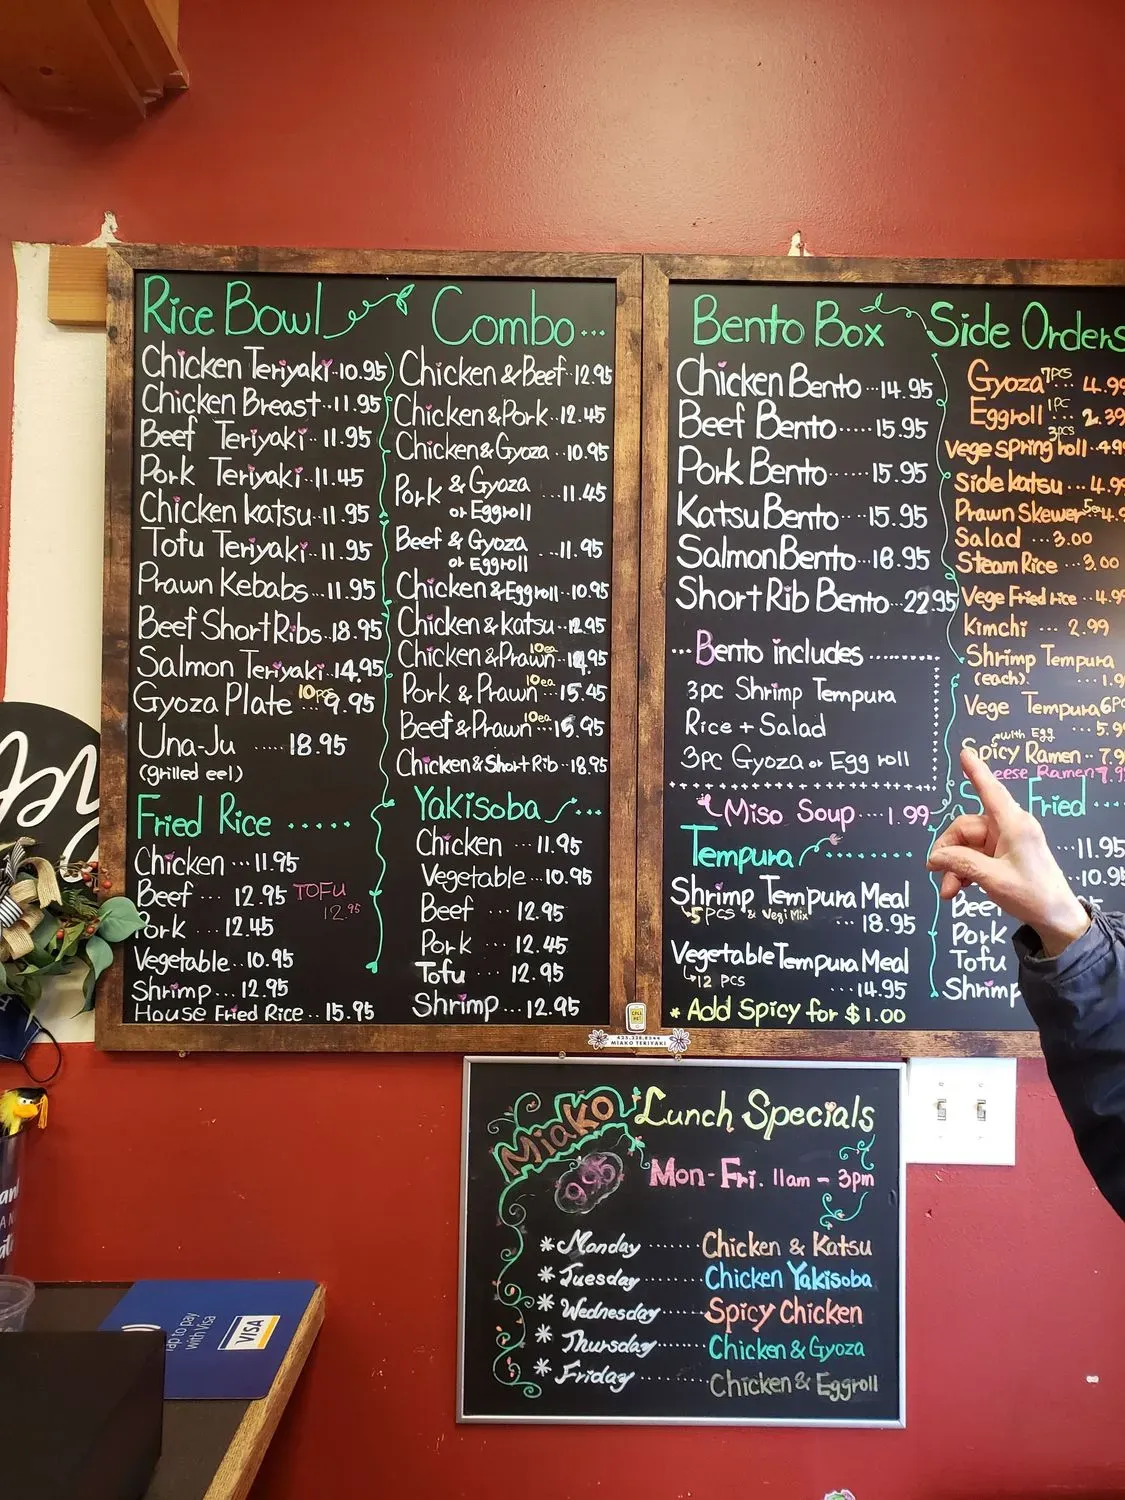 Rice Bowl
Chicken Teriyaki 10.95
Chicken Breast.. 11.95
Beef Teriyaki.. 11.95
Pork Teriyaki.. 11.45
Chicken katsu.. 11.95
Tofu Teriyaki.. 11.95
Prawn Kebabs... 11.95
Beef Short Ribs. 18.95
Salmon Teriyaki. 14.95
Gyoza Plate 10pcs 9.95
Una-Ju ..... 18.95
(grilled eel)
Fried Rice .....
Chicken ... 11.95
Beef .. 12.95 TOFU
12.95
Pork ... 12.45
Vegetable.. 10.95
Shrimp... 12.95
House Fried Rice .. 15.95
Combo...
Chicken & Beef. 12.95
Chicken & Pork.. 12.45
Chicken & Gyoza .. 10.95
Pork & Gyoza ... 11.45
or Eggroll
Beef & Gyoza ... 11.95
or Eggroll
Chicken & Eggroll.. 10.95
Chicken & Katsu
Chicken & Prawn 10ea
Pork & Prawn 10ea 15.45
Beef & Prawn 10ea
Chicken & Short Rib.. 18.95
Yakisoba ...
Chicken ... 11.95
Vegetable... 10.95
Beef ... 12.95
Pork ... 12.45
Tofu ... 12.95
Shrimp... 12.95
Bento Box
Chicken Bento ... 14.95
Beef Bento ..... 15.95
Pork Bento .... 15.95
Katsu Bento .... 15.95
Salmon Bento
Short Rib Bento .. 22.95
... Bento includes ........
3pc Shrimp Tempura
Rice + Salad
3pc Gyoza or Egg roll
Miso Soup ... 1.99
Tempura ........
Shrimp Tempura Meal
5 pcs & Vegi Mix ... 18.95
Vegetable Tempura Meal
12 pcs
... 14.95
* Add Spicy for $1.00
Side Orders
Gyoza 7pcs ... 4.99
Eggroll 1pc ... 2.39
3pcs
Vege Spring roll .. 4.99
Side katsu ... 4.99
Prawn Skewer
Salad ... 3.00
Steam Rice ... 3.00
Vege Fried rice .. 4.99
Kimchi ... 2.99
Shrimp Tempura
(each)
Vege Tempura 6pc
with Egg
Spicy Ramen
Ramen
Fried ....
... 11.95
Beef
Pork
Tofu
Shrimp
425.228.8244
MIAKO TERIYAKI
Miako Lunch Specials
9.95
Mon - Fri. 11am - 3pm
* Monday ....... Chicken & Katsu
* Tuesday ....... Chicken Yakisoba
* Wednesday ....... Spicy Chicken
* Thursday ....... Chicken & Gyoza
* Friday ....... Chicken & Eggroll
Tap to pay
with Visa
VISA